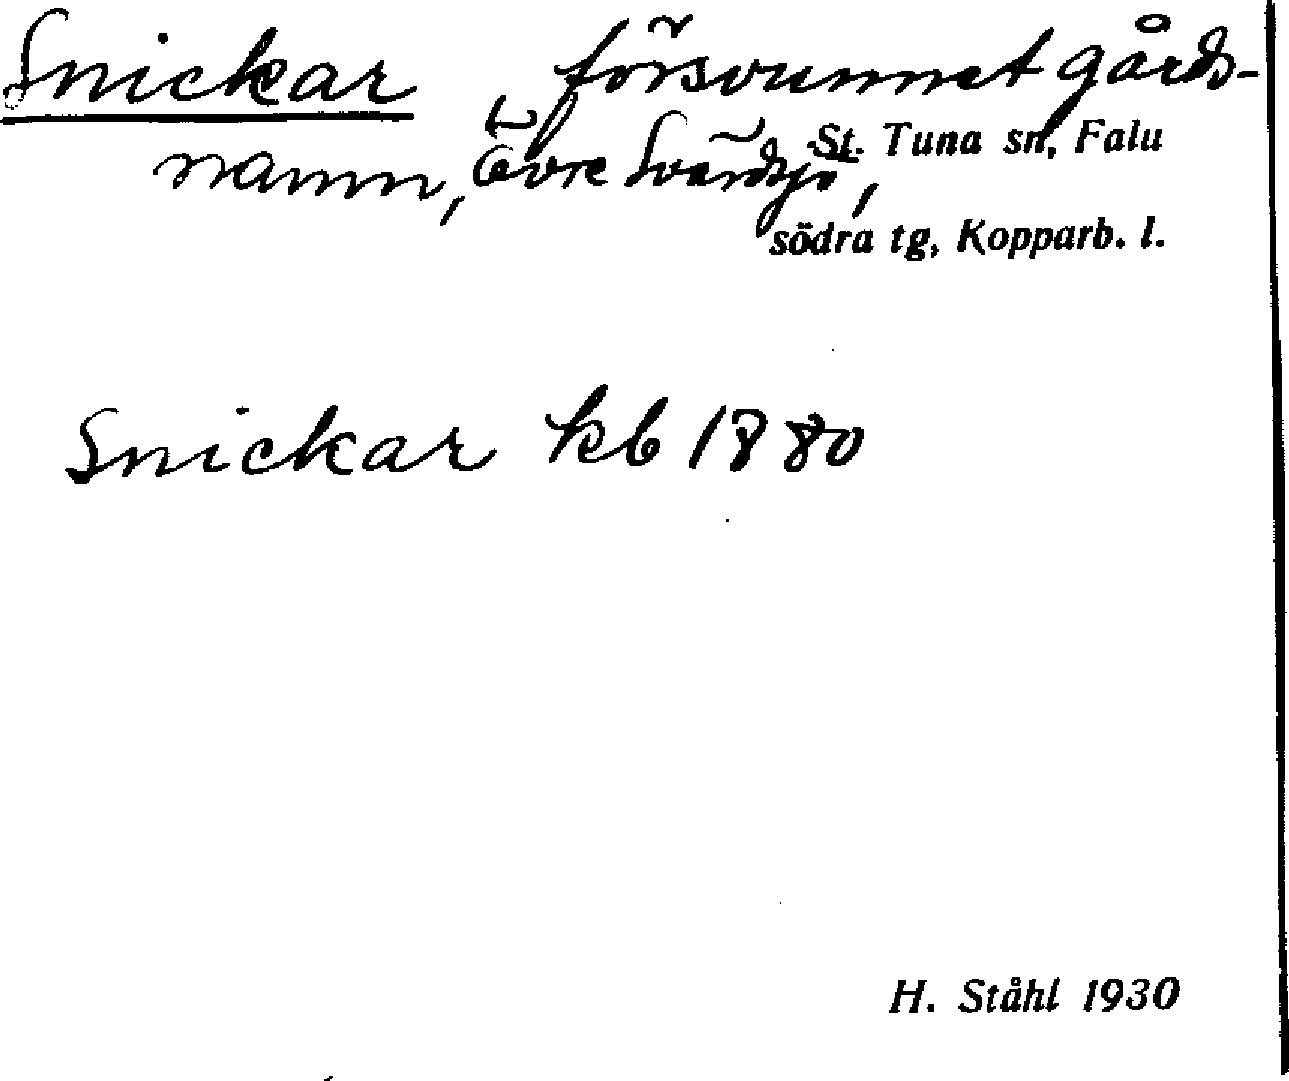 Snickar försvunnet gårds-
namn, Övre Svärdsjö, St. Tuna sn, Falu
södra tg, Kopparb. l.
Snickar kb 1880
H. Ståhl 1930